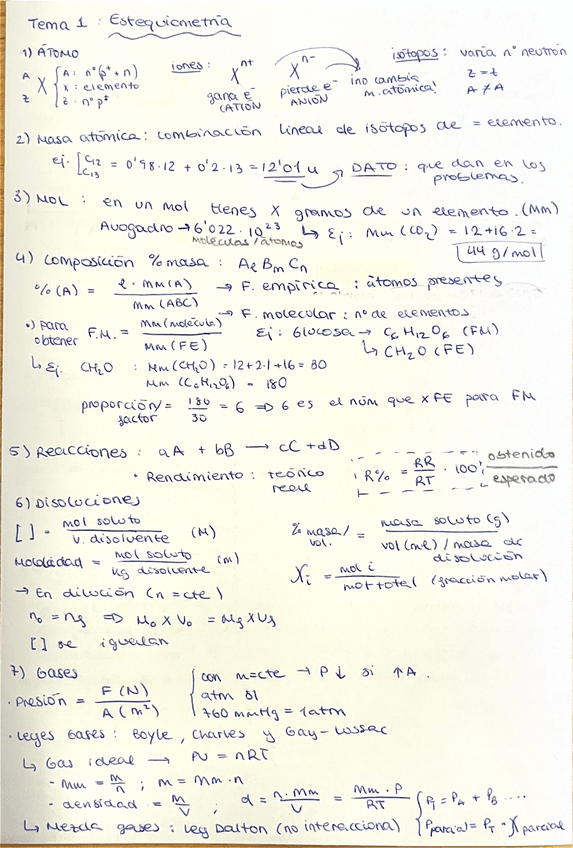 Tema 1 : Estequiometría
1) ÁTOMO
A X Z { A: nº(p⁺ + n)
x : elemento
Z : nº p⁺
iones : Xⁿ⁺ gana e⁻ CATION
Xⁿ⁻ pierde e⁻ ANION
¡no cambia m. atómica!
isótopos : varía nº neutrón
Z = Z
A ≠ A
2) Masa atómica : combinación lineal de isótopos de = elemento.
ej. [C12 C13 = 0'98·12 + 0'2·13 = 12'01 u → DATO : que dan en los problemas.
3) MOL : en un mol tienes X gramos de un elemento. (MM)
Avogadro → 6'022·10²³ moléculas/átomos
↳ Ej: MM(CO₂) = 12+16·2 =
44 g/mol
4) Composición % masa : AₗBₘCₙ
%(A) = l · MM(A) / MM(ABC)
→ F. empírica : átomos presentes
→ F. molecular : nº de elementos
•) para obtener F.M. = MM(molécula) / MM(FE)
Ej: Glucosa → C₆H₁₂O₆ (FM)
↳ CH₂O (FE)
↳ Ej. CH₂O : MM(CH₂O) = 12+2·1+16 = 30
MM(C₆H₁₂O₆) = 180
proporción/factor = 180/30 = 6 ⇒ 6 es el núm que xFE para FM
5) Reacciones : aA + bB → cC + dD
• Rendimiento : teórico
real
R% = RR/RT · 100
obtenido/esperado
6) Disoluciones
[ ] = mol soluto / v. disolvente (M)
% masa/vol. = masa soluto (g) / vol (ml) / masa de disolución
Molalidad = mol soluto / kg disolvente (m)
Xᵢ = mol i / mol total (fracción molar)
→ En dilución (n = cte)
n₀ = nf ⇒ M₀ x V₀ = Mf x Vf
[ ] se igualan
7) Gases
· Presión = F (N) / A (m²)
con m=cte → P ↓ si ↑A.
atm SI
760 mmHg = 1atm
· Leyes Gases : Boyle, Charles y Gay-Lussac
↳ Gas ideal → PV = nRT
- MM = m/n ; m = MM · n
- densidad = m/V ; d = n·MM/V = MM·P/RT
↳ Mezcla gases : Ley Dalton (no interacciona)
PT = PA + PB ....
Pparcial = PT · X parcial